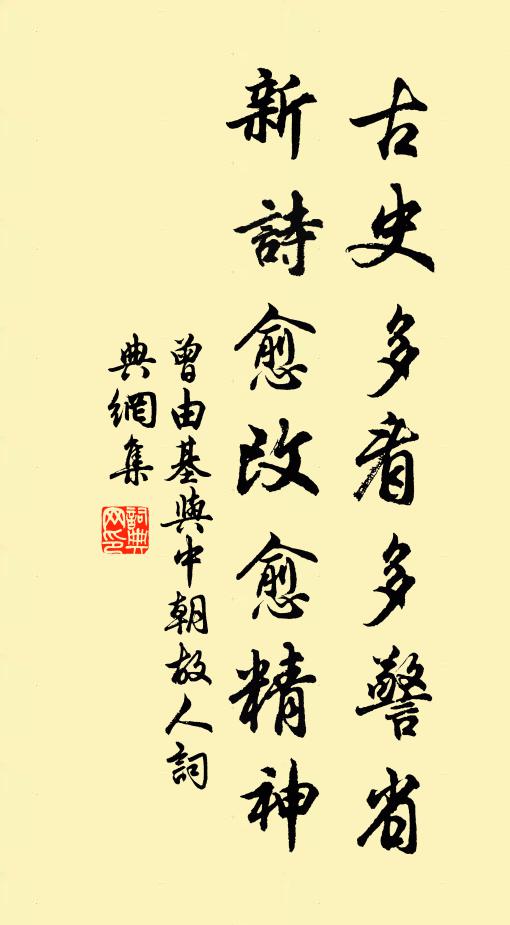 古史多看多警省
新詩愈改愈精神
曾由基與中朝故人詞
典網集
詞典
网印